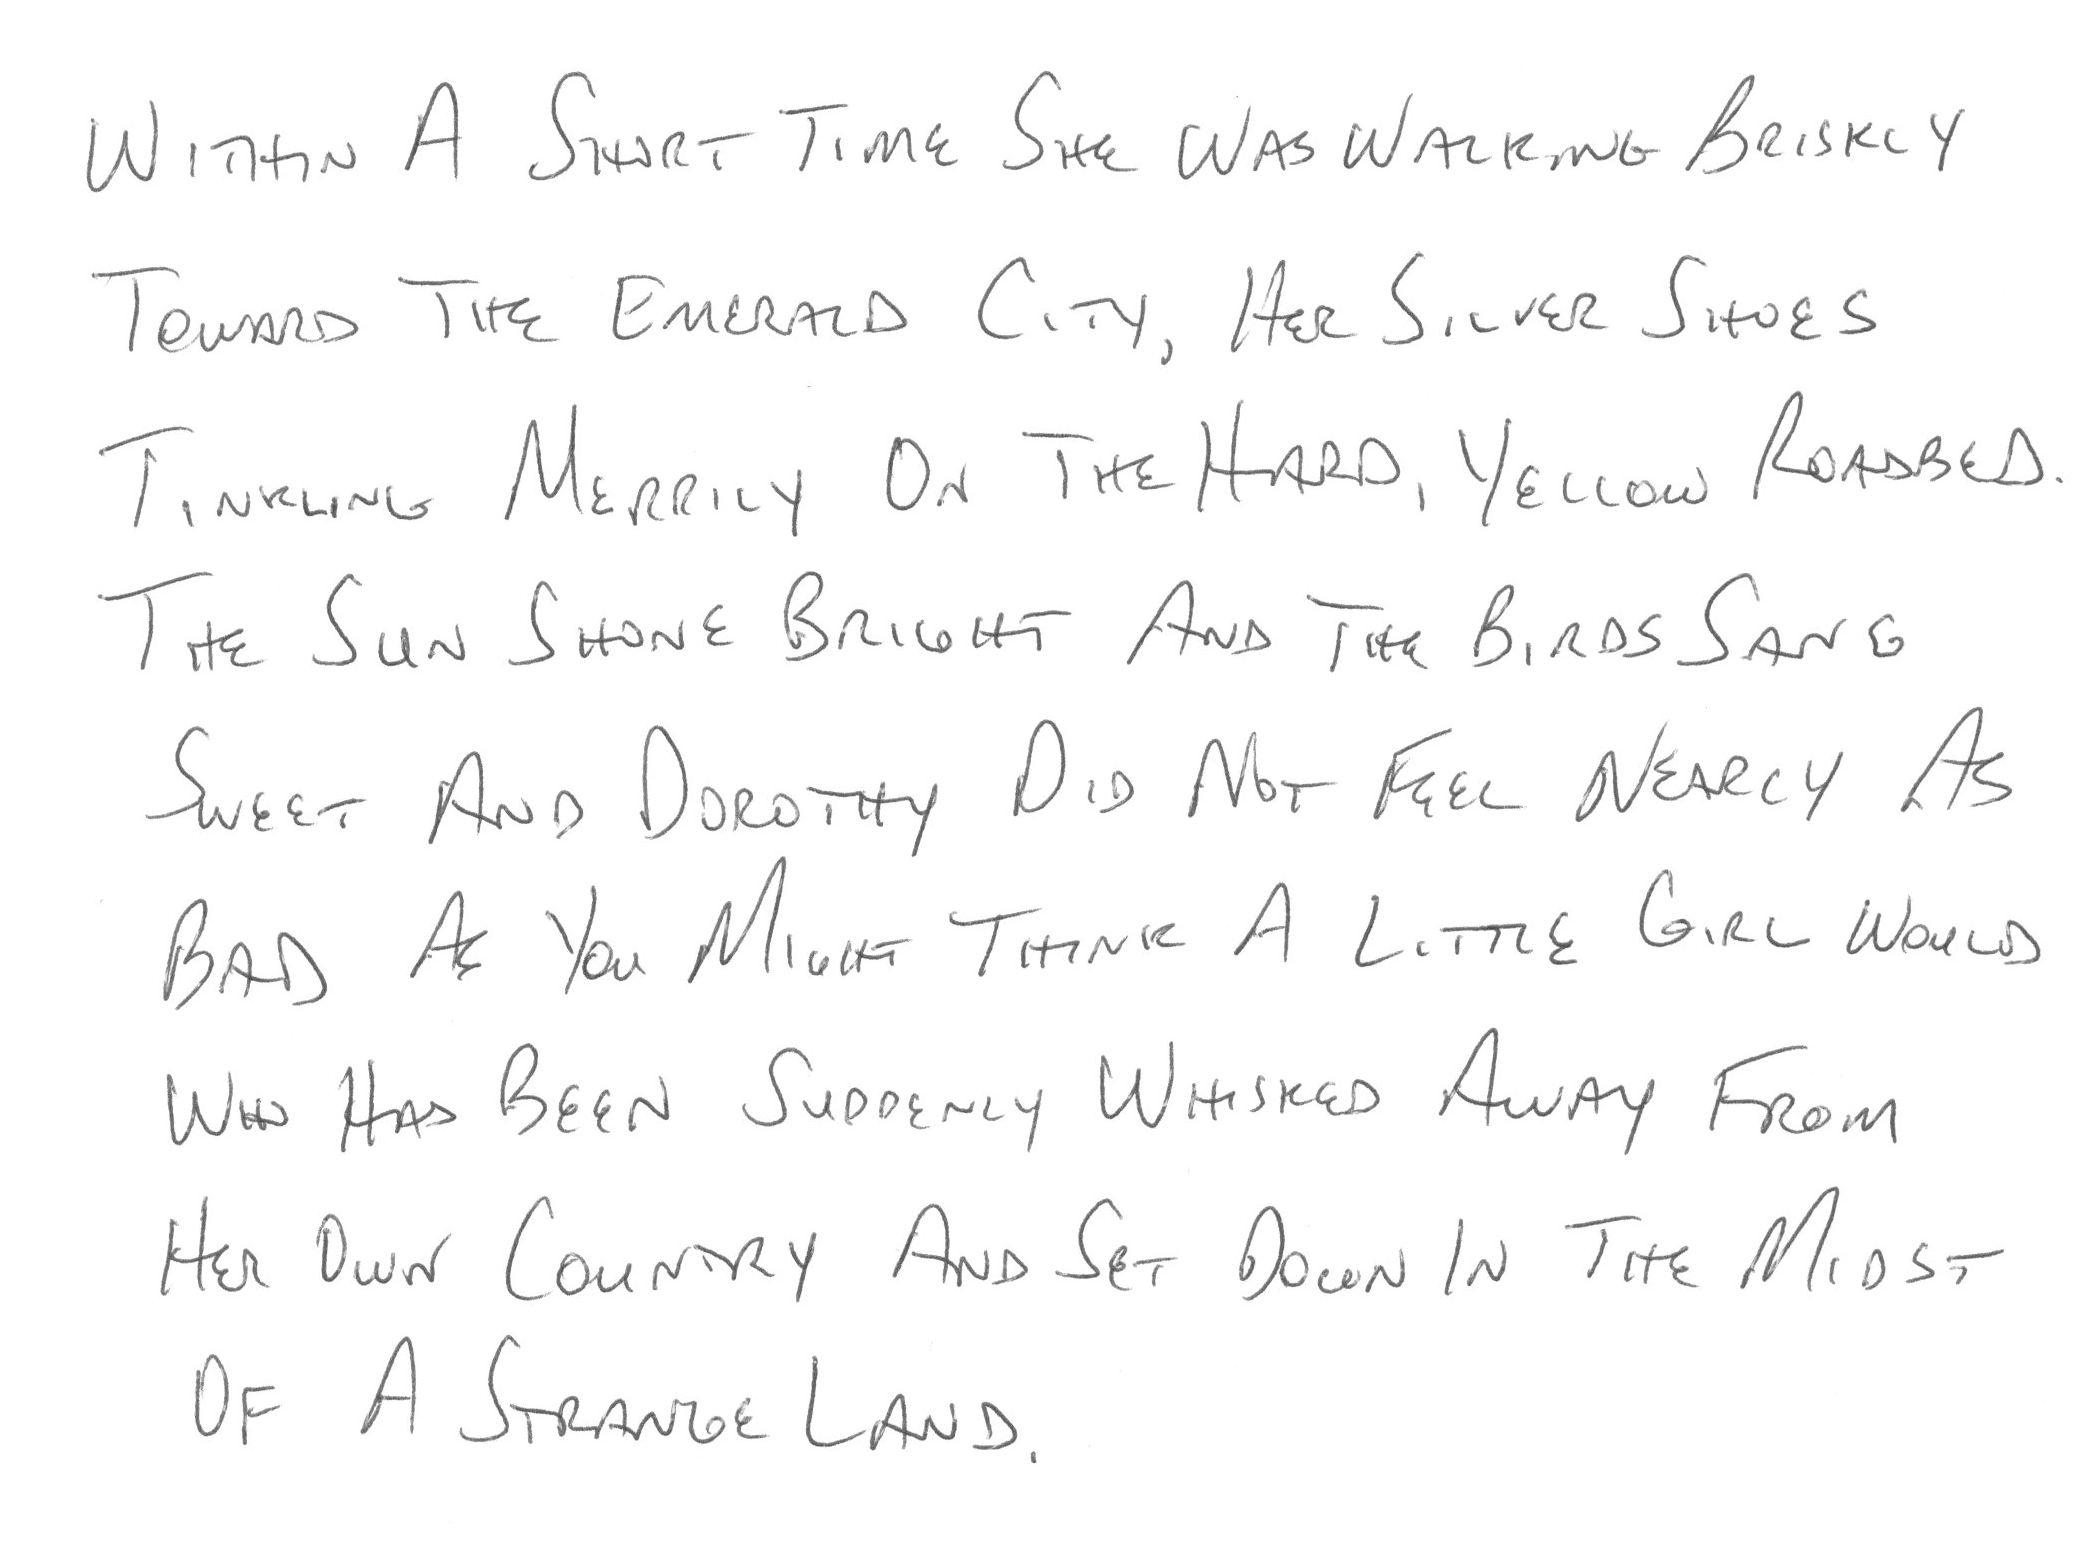 Within A Short Time She Was Walking Briskly
Toward The Emerald City, Her Silver Shoes
Tinkling Merrily On The Hard, Yellow Roadbed.
The Sun Shone Bright And The Birds Sang
Sweet And Dorothy Did Not Feel Nearly As
Bad As You Might Think A Little Girl Would
Who Had Been Suddenly Whisked Away From
Her Own Country And Set Down In The Midst
Of A Strange Land.